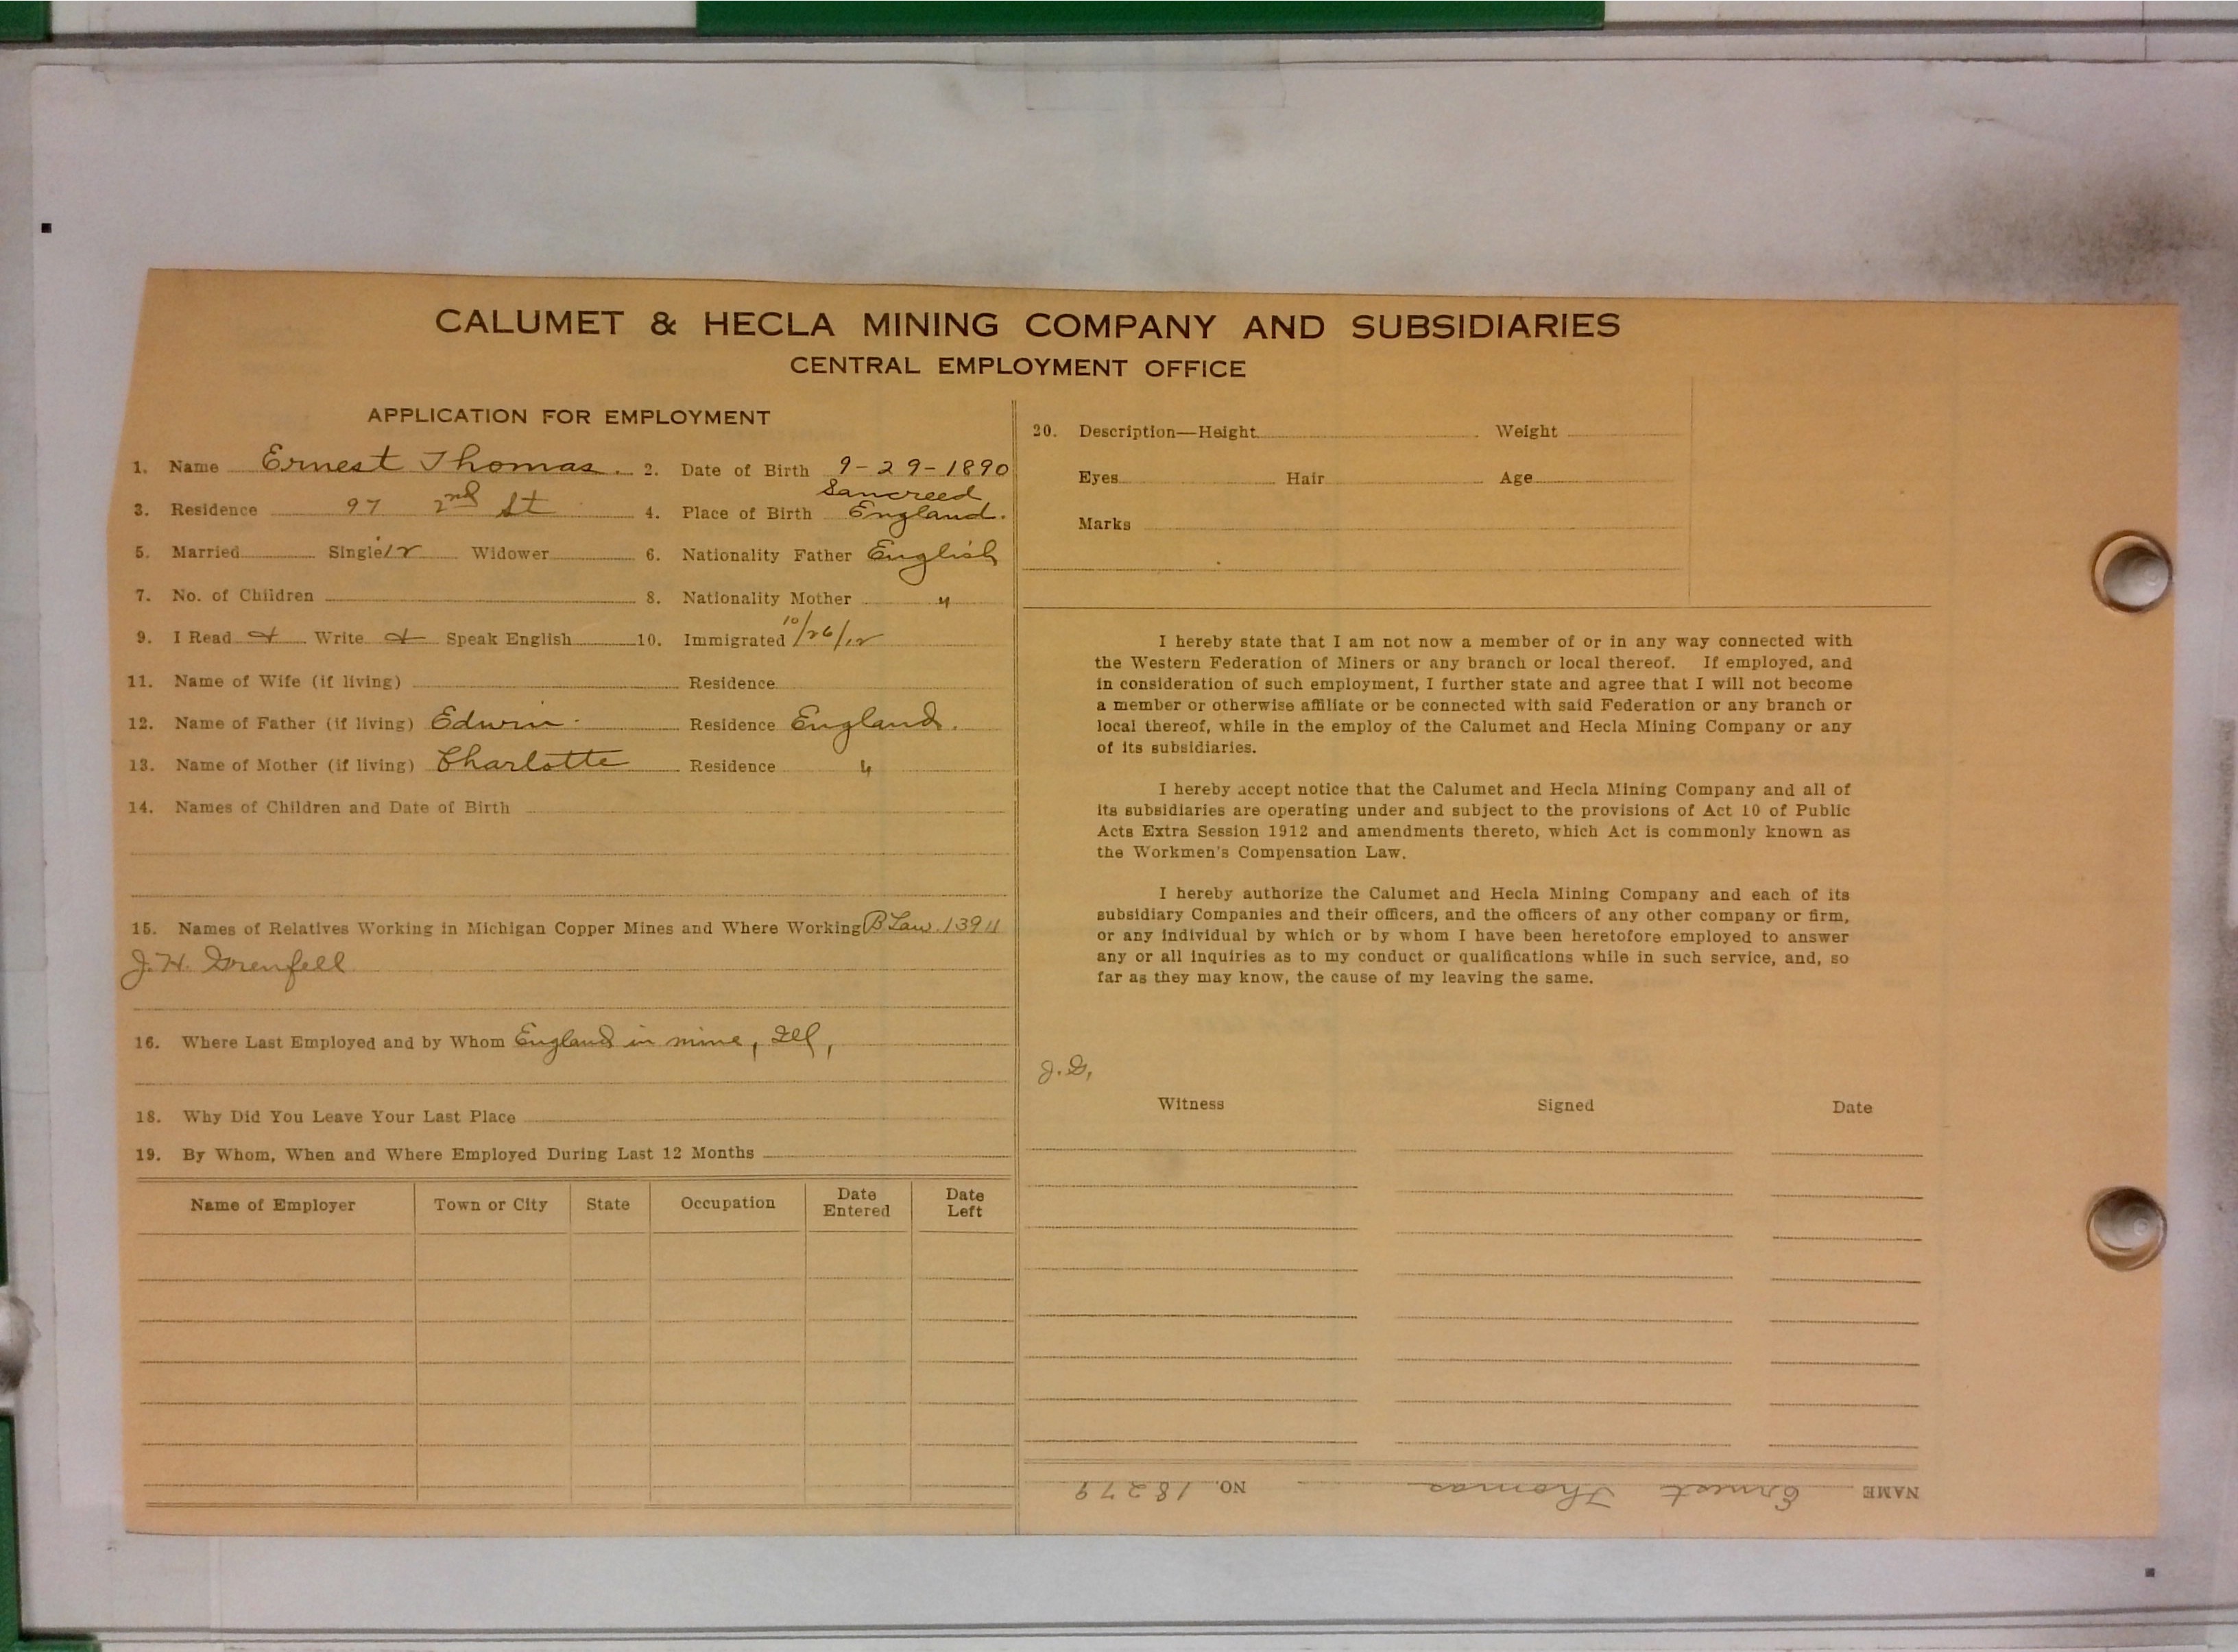 CALUMET & HECLA MINING COMPANY AND SUBSIDIARIES
CENTRAL EMPLOYMENT OFFICE
APPLICATION FOR EMPLOYMENT
1. Name Ernest Thomas. 2. Date of Birth 9-29-1890
3. Residence 97 2nd St 4. Place of Birth Sancreed England.
5. Married Single Widower 6. Nationality Father English
7. No. of Children 8. Nationality Mother "
9. I Read Write Speak English 10. Immigrated 10/26/12
11. Name of Wife (if living) Residence
12. Name of Father (if living) Edwin. Residence England.
13. Name of Mother (if living) Charlotte Residence "
14. Names of Children and Date of Birth
15. Names of Relatives Working in Michigan Copper Mines and Where Working B Law. 13911
J. H. Grenfell
16. Where Last Employed and by Whom England in mine, Ill,
18. Why Did You Leave Your Last Place
19. By Whom, When and Where Employed During Last 12 Months
Name of Employer Town or City State Occupation Date Entered Date Left
20. Description—Height Weight
Eyes Hair Age
Marks
I hereby state that I am not now a member of or in any way connected with
the Western Federation of Miners or any branch or local thereof. If employed, and
in consideration of such employment, I further state and agree that I will not become
a member or otherwise affiliate or be connected with said Federation or any branch or
local thereof, while in the employ of the Calumet and Hecla Mining Company or any
of its subsidiaries.
I hereby accept notice that the Calumet and Hecla Mining Company and all of
its subsidiaries are operating under and subject to the provisions of Act 10 of Public
Acts Extra Session 1912 and amendments thereto, which Act is commonly known as
the Workmen's Compensation Law.
I hereby authorize the Calumet and Hecla Mining Company and each of its
subsidiary Companies and their officers, and the officers of any other company or firm,
or any individual by which or by whom I have been heretofore employed to answer
any or all inquiries as to my conduct or qualifications while in such service, and, so
far as they may know, the cause of my leaving the same.
J. G,
Witness Signed Date
NAME Ernest Thomas NO. 18279